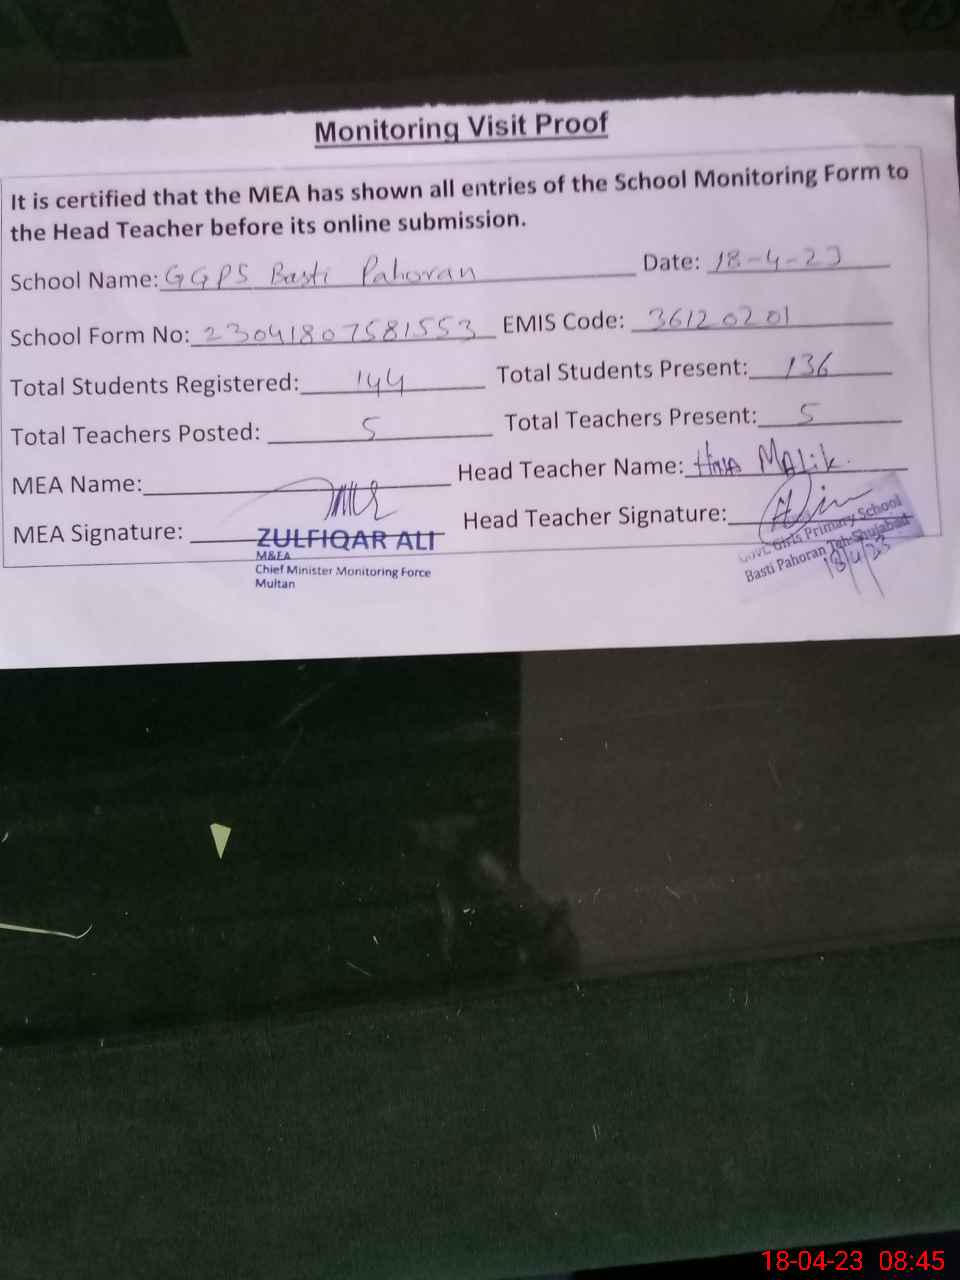 Monitoring Visit Proof
It is certified that the MEA has shown all entries of the School Monitoring Form to
the Head Teacher before its online submission.
School Name: GGPS Basti Pahoran Date: 18-4-23
School Form No: 23041807581553 EMIS Code: 36120201
Total Students Registered: 144 Total Students Present: 136
Total Teachers Posted: 5 Total Teachers Present: 5
MEA Name: Head Teacher Name: Hina Malik.
MEA Signature: Head Teacher Signature:
ZULFIQAR ALI
M&EA
Chief Minister Monitoring Force
Multan
Govt. Girls Primary School
Basti Pahoran Teh Shujabad
18/4/23
18-04-23 08:45